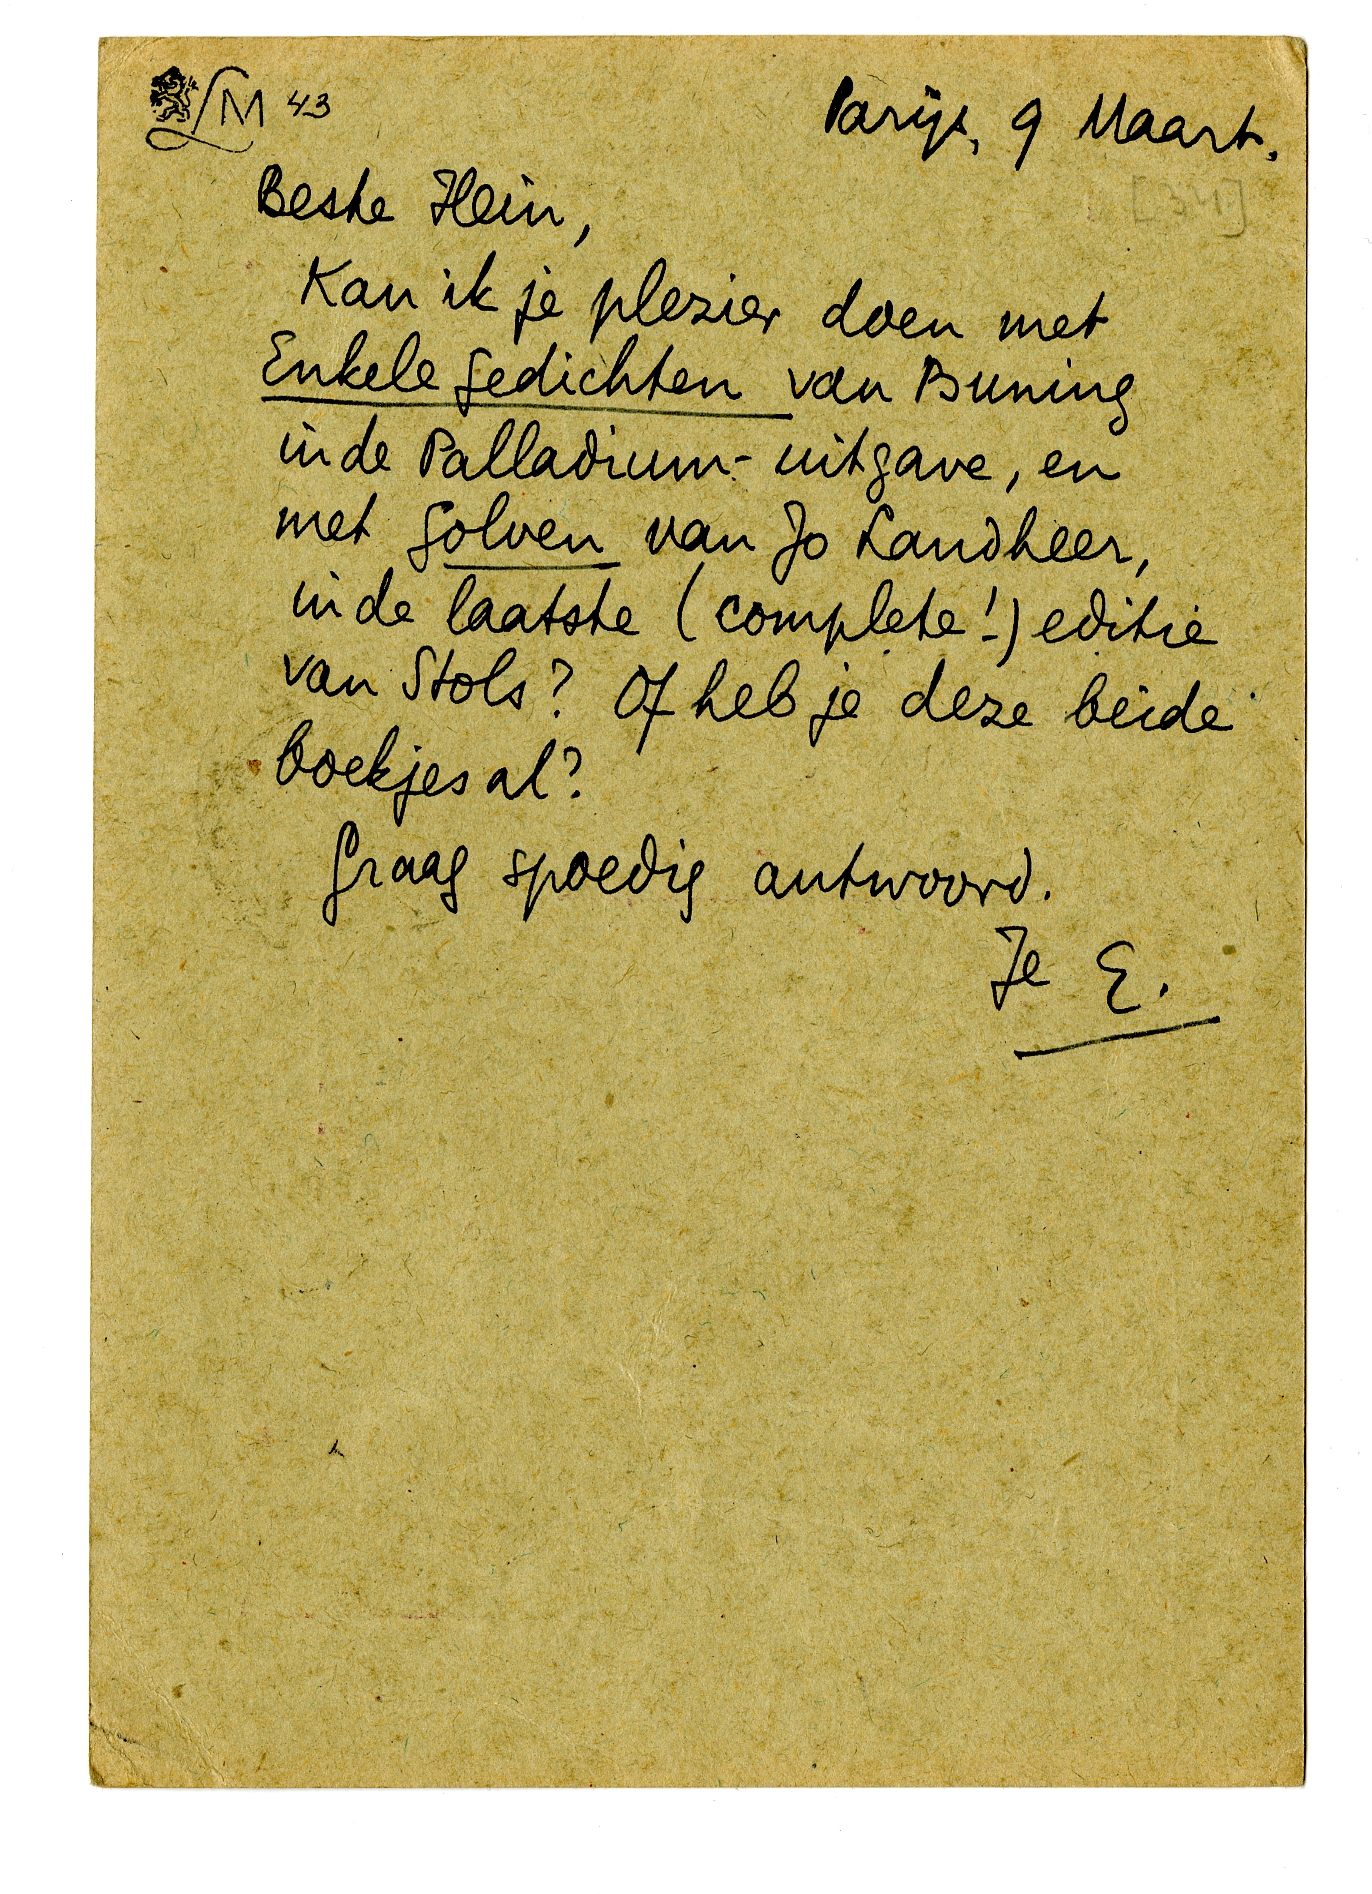 LM 43
Parijs, 9 Maart.
[34]
Beste Hein,
Kan ik je plezier doen met
Enkele Gedichten van Buning
in de Palladium-uitgave, en
met Golven van Jo Landheer,
in de laatste (complete!) editie
van Stols? Of heb je deze beide
boekjes al?
Graag spoedig antwoord.
Je E.